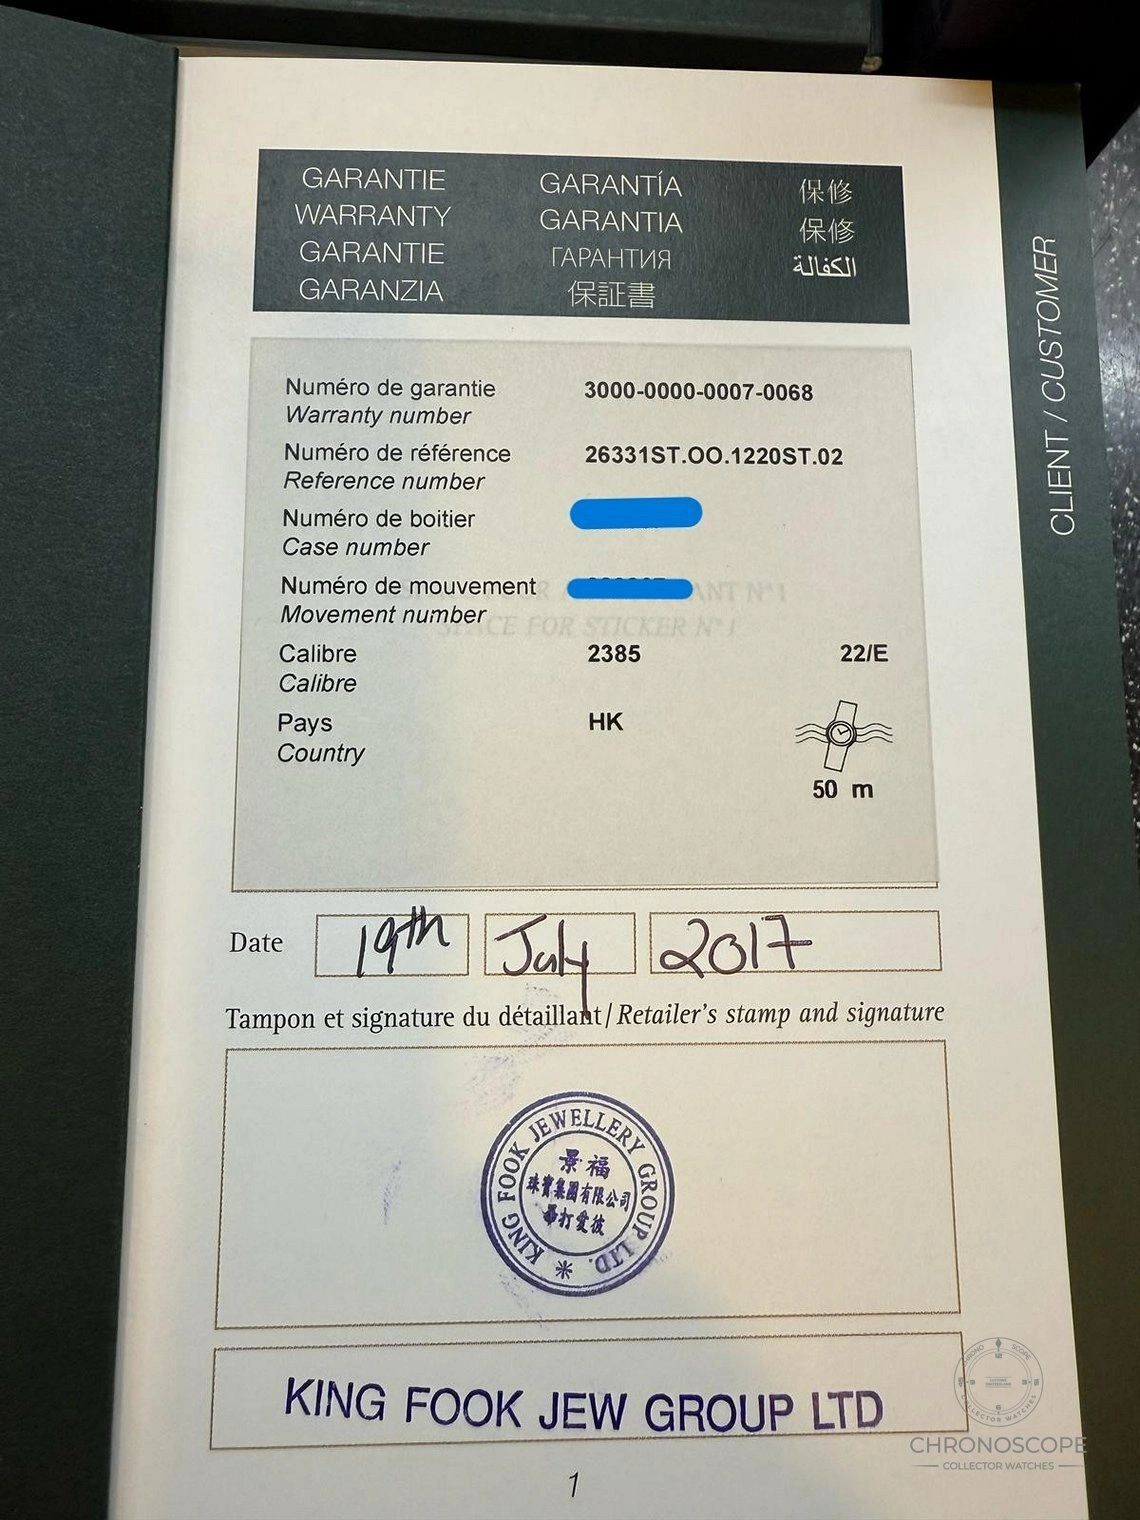 GARANTIE GARANTÍA 保修
WARRANTY GARANTIA 保修
GARANTIE ГАРАНТИЯ الكفالة
GARANZIA 保証書
CLIENT / CUSTOMER
Numéro de garantie 3000-0000-0007-0068
Warranty number
Numéro de référence 26331ST.OO.1220ST.02
Reference number
Numéro de boitier
Case number
Numéro de mouvement ANT N°1
Movement number SPACE FOR STICKER N°1
Calibre 2385 22/E
Calibre
Pays HK
Country
50 m
Date 19th July 2017
Tampon et signature du détaillant/Retailer's stamp and signature
KING FOOK JEWELLERY GROUP LTD.
景福
珠寶集團有限公司
打愛彼
KING FOOK JEW GROUP LTD
CHRONO SCOPE
COLLECTOR WATCHES
CHRONOSCOPE
COLLECTOR WATCHES
1